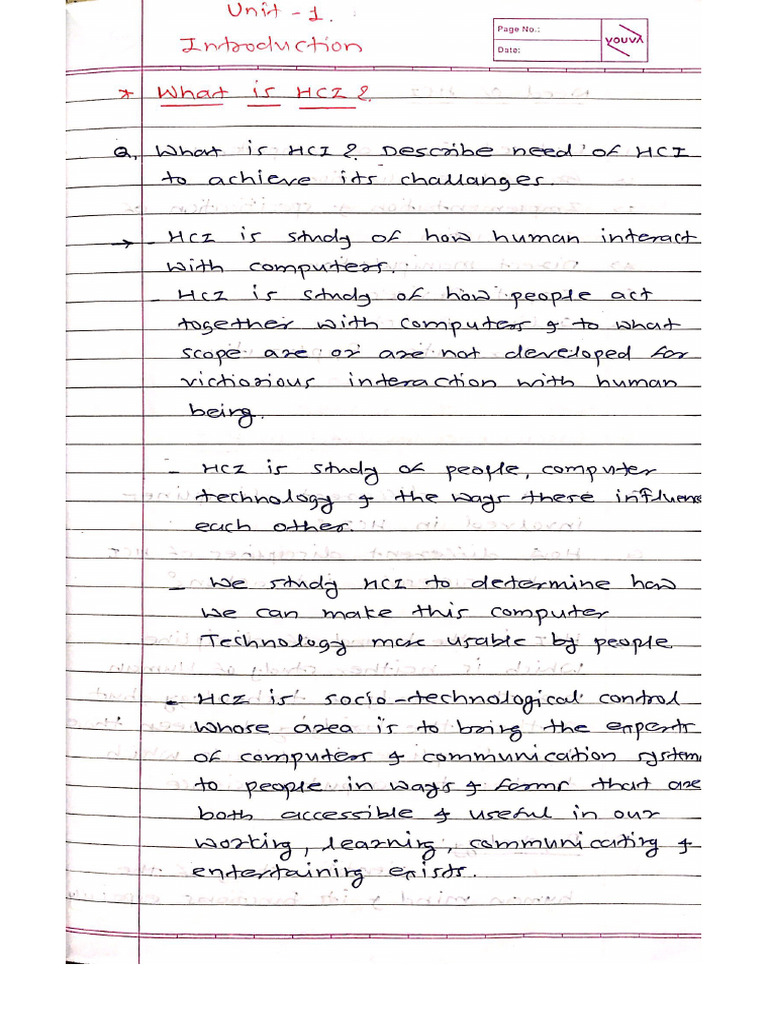 Unit - 1.
Introduction
Page No.:
Date:
YOUVA
* What is HCI ?
Q. What is HCI ? Describe need of HCI
to achieve its challanges.
→ - HCI is study of how human interact
with computers.
- HCI is study of how people act
together with computers & to what
scope are or are not developed for
victiorious interaction with human
being.
- HCI is study of people, computer
technology & the ways these influenc
each other.
- We study HCI to determine how
we can make this computer
Technology more usable by people
- HCI is socio-technological control
whose area is to bring the experts
of computers & communication system
to people in ways & forms that are
both accessible & useful in our
working, learning, communicating &
entertaining exists.